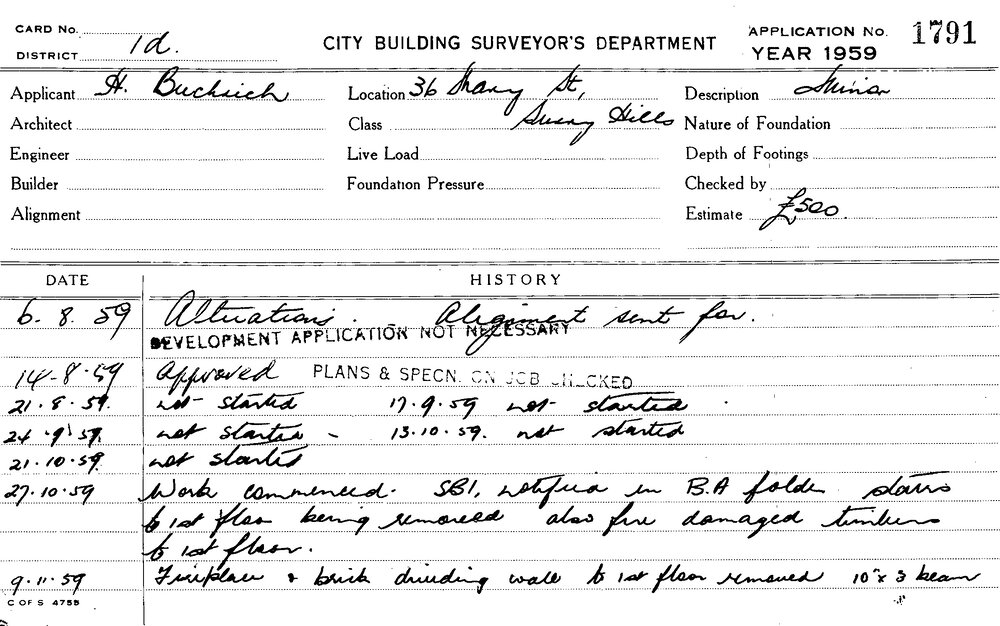 CARD No.
DISTRICT 1d.
CITY BUILDING SURVEYOR'S DEPARTMENT
APPLICATION No. 1791
YEAR 1959
Applicant H. Location 36 St, Description Minor
Architect Class Surry Hills Nature of Foundation
Engineer Live Load Depth of Footings
Builder Foundation Pressure Checked by
Alignment Estimate £500.
DATE HISTORY
6. 8. 59 Alterations. Alignment sent for.
DEVELOPMENT APPLICATION NOT NECESSARY
14-8-59 Approved PLANS & SPECN. ON JOB CHECKED
21.8.59. not started 17.9.59 not started
24.9.59. not started - 13.10.59. not started
21.10.59. not started
27.10.59 Work commenced. SBI, notified in B.A folder stairs
to 1st floor being removed also fire damaged timbers
to 1st floor.
9.11.59 Fireplace & brick dividing wall to 1st floor removed 10"x 3 beam
C OF S 4755